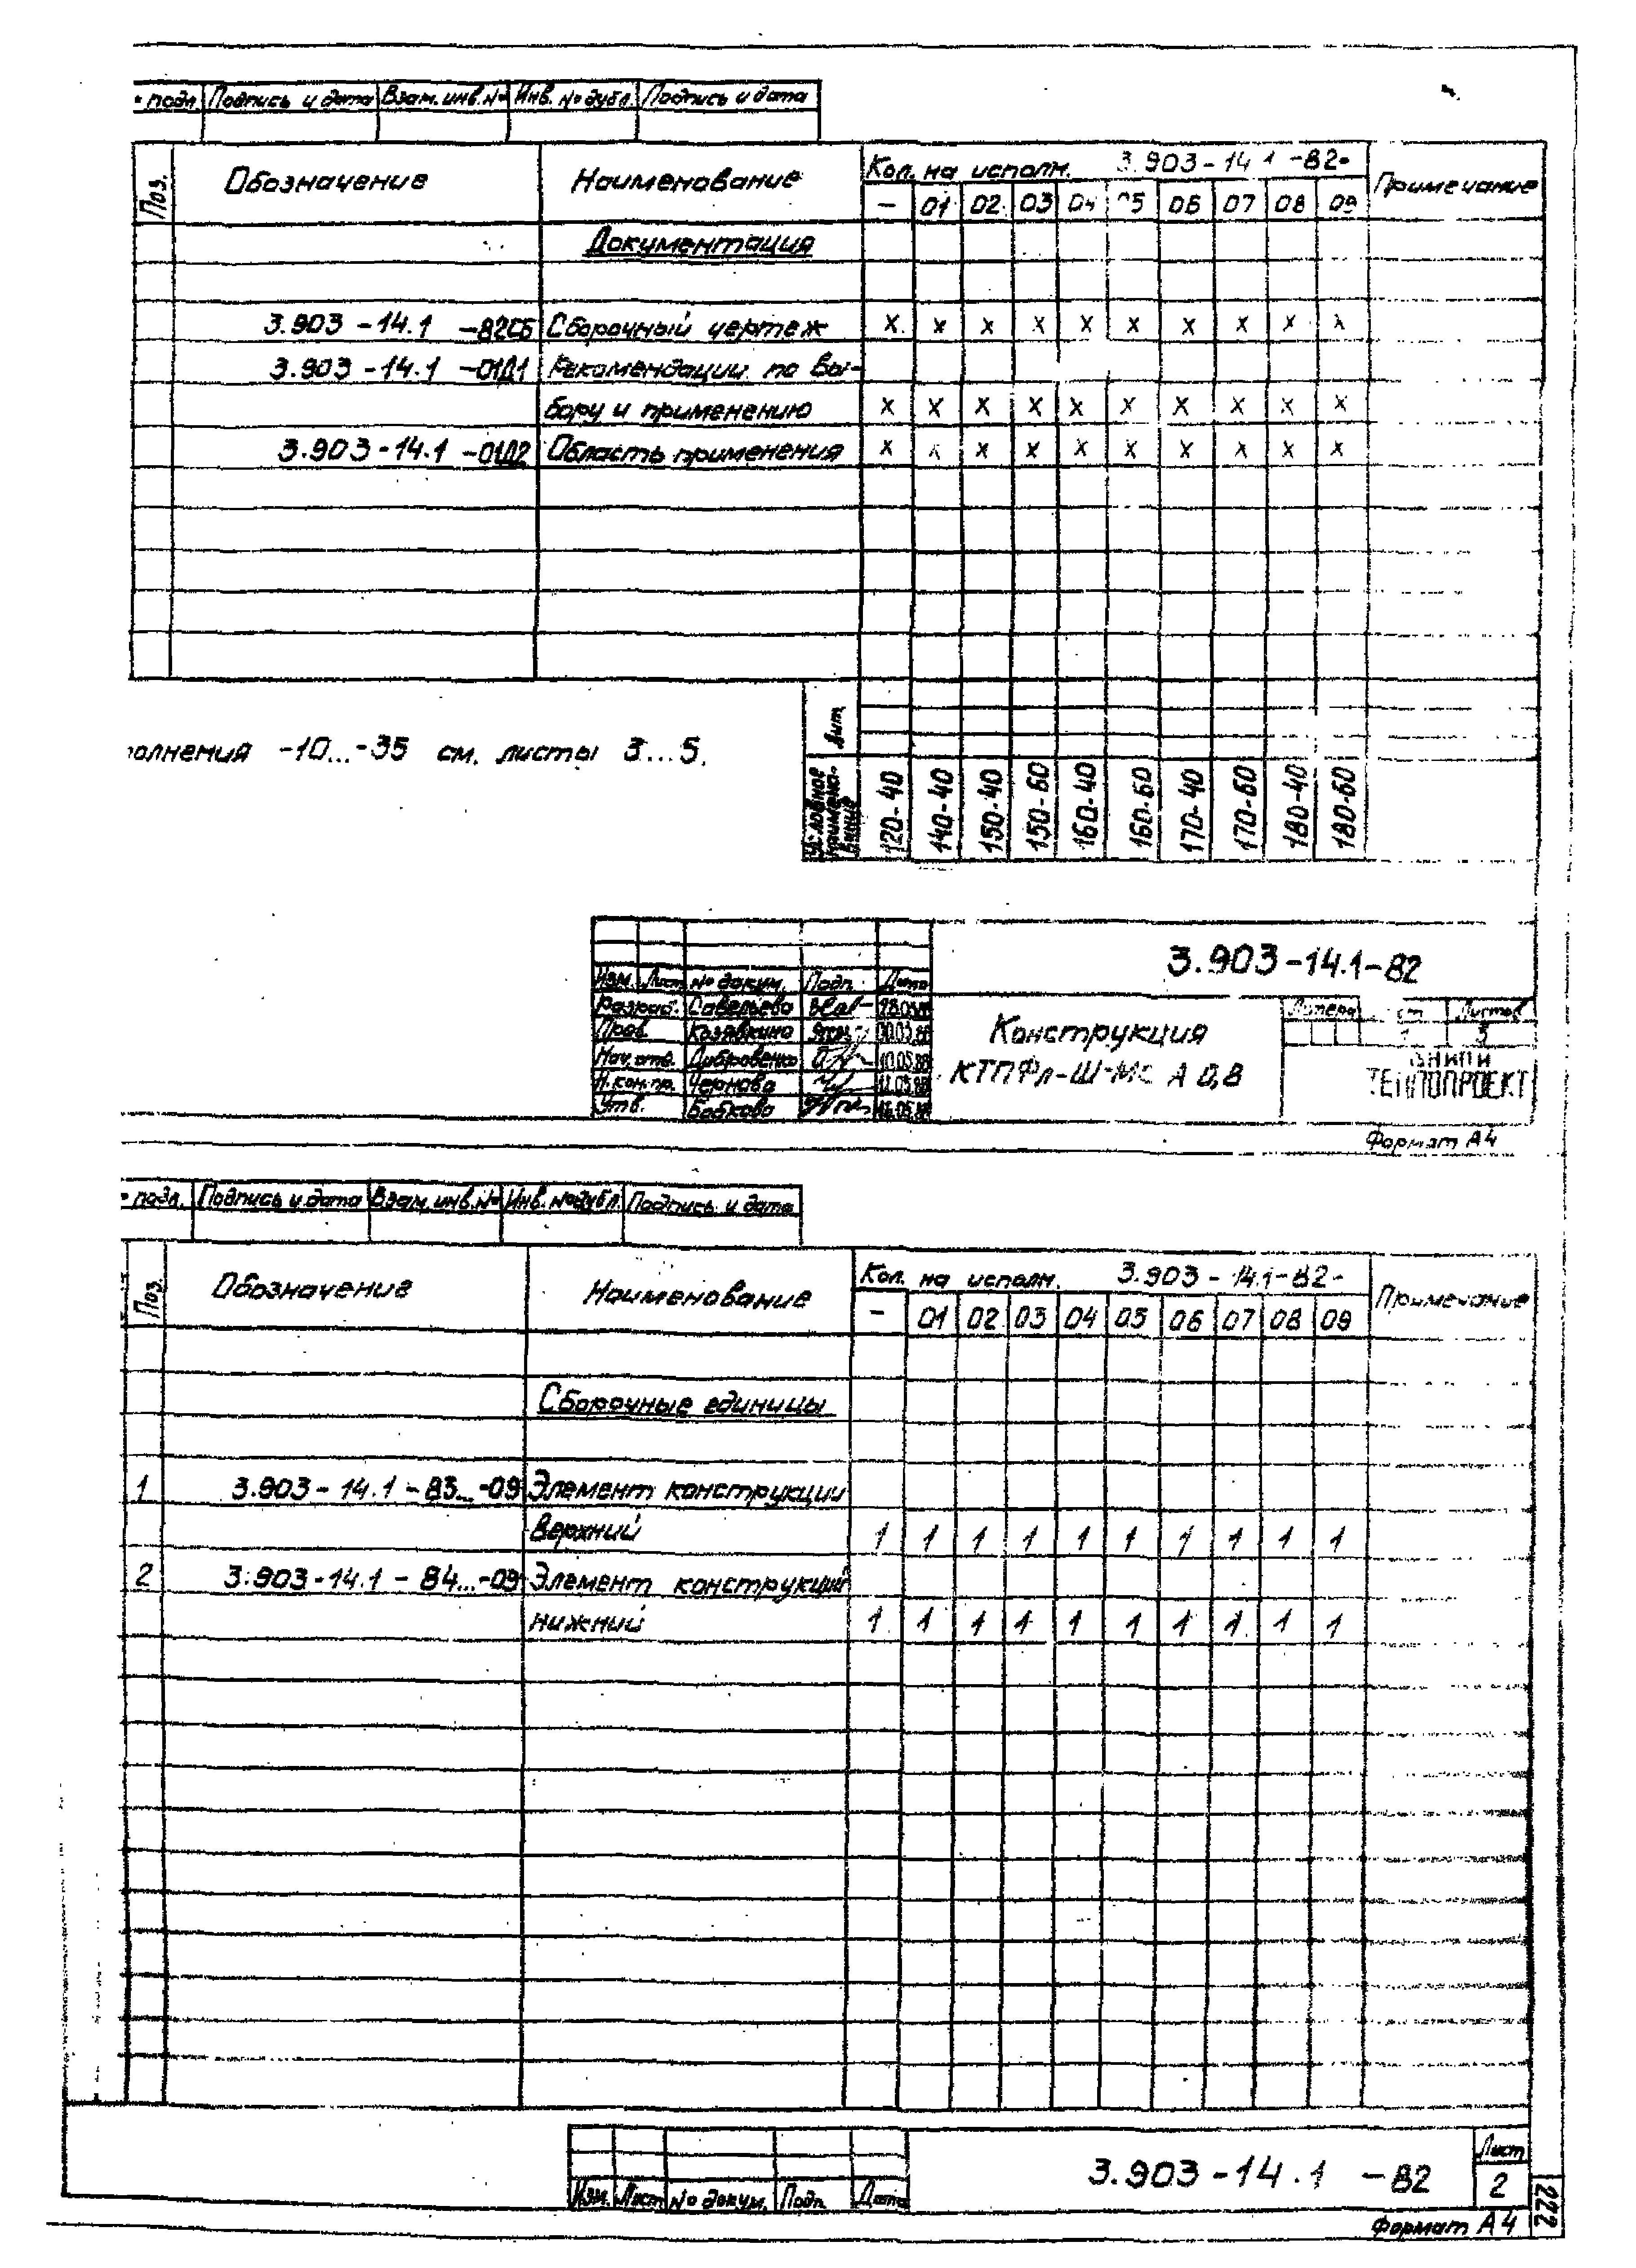 подл. Подпись и дата Взам. инв. № Инв. № дубл. Подпись и дата
Поз. Обозначение Наименование Кол. на исполн. 3.903-14.1-82- Примечание
— 01 02 03 04 05 06 07 08 09
Документация
3.903-14.1 -82СБ Сборочный чертеж X X X X X X X X X X
3.903-14.1 -01Д1 Рекомендации по вы-
бору и применению X X X X X X X X X X
3.903-14.1 -01Д2 Область применения X X X X X X X X X X
олнения -10...-35 см. листы 3...5.
Лит.
Условное наименование 120-40 140-40 150-40 150-60 160-40 160-60 170-40 170-60 180-40 180-60
3.903-14.1-82
Изм. Лист № докум. Подп. Дата
Разраб. Савельева
Пров. Козявкина
Нач. отд.
Н. контр. Чернова
Утв. Бобкова
Конструкция
КТПФл-Ш-МС А 0,8
Литера Листов
5
ВНИПИ
ТЕПЛОПРОЕКТ
Формат А4
подл. Подпись и дата Взам. инв. № Инв. № дубл. Подпись и дата
Поз. Обозначение Наименование Кол. на исполн. 3.903-14.1-82- Примечание
— 01 02 03 04 05 06 07 08 09
Сборочные единицы
1 3.903-14.1-83...-09 Элемент конструкции
верхний 1 1 1 1 1 1 1 1 1 1
2 3.903-14.1-84...-09 Элемент конструкций
нижний 1 1 1 1 1 1 1 1 1 1
Изм. Лист № докум. Подп. Дата
3.903-14.1 -82
Лист
2
Формат А4
222